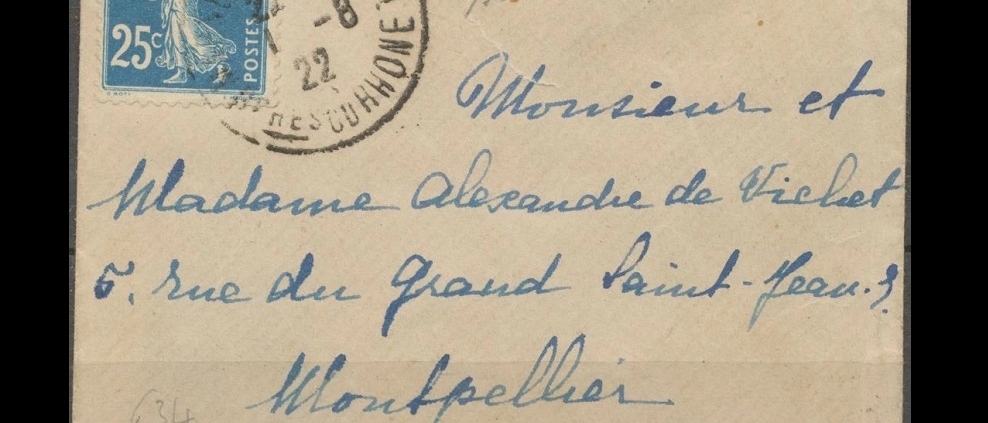 25c
POSTES
-8
22
RES DU RHONE
Monsieur et
Madame Alexandre de Vichet
5, rue du Grand Saint-Jean.
Montpellier
34